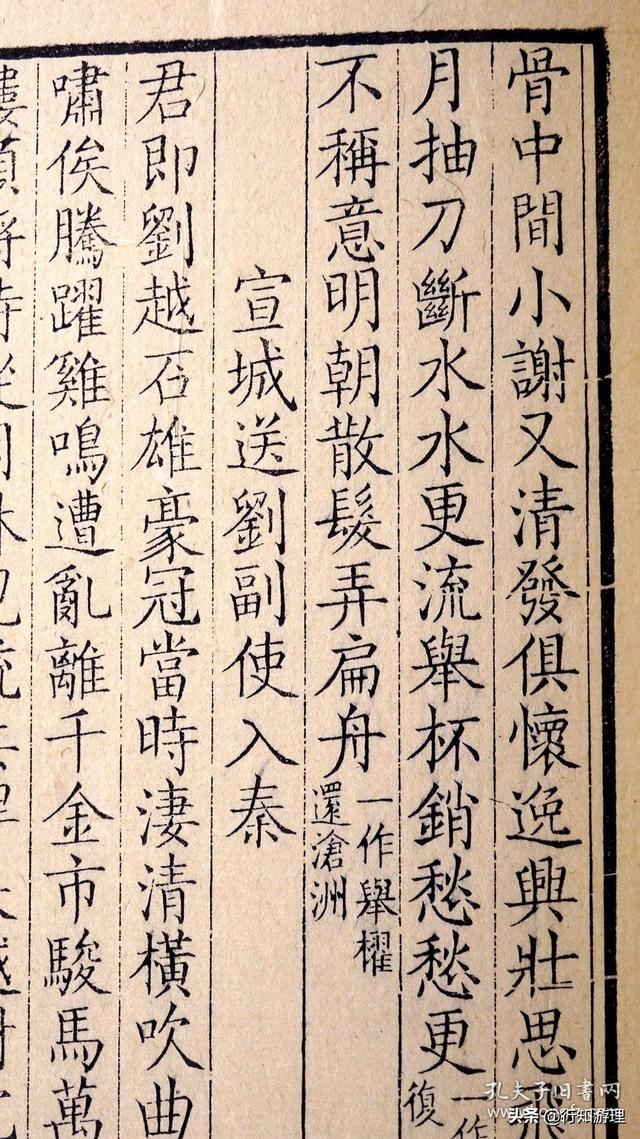 骨中間小謝又清發俱懷逸興壯思飛
月抽刀斷水水更流舉杯銷愁愁更
一作
復
不稱意明朝散髮弄扁舟
一作舉櫂
還滄洲
宣城送劉副使入秦
君即劉越石雄豪冠當時淒清橫吹曲
嘯俟騰躍雞鳴遭亂離千金市駿馬萬
孔夫子旧书网
头条 @行知游理